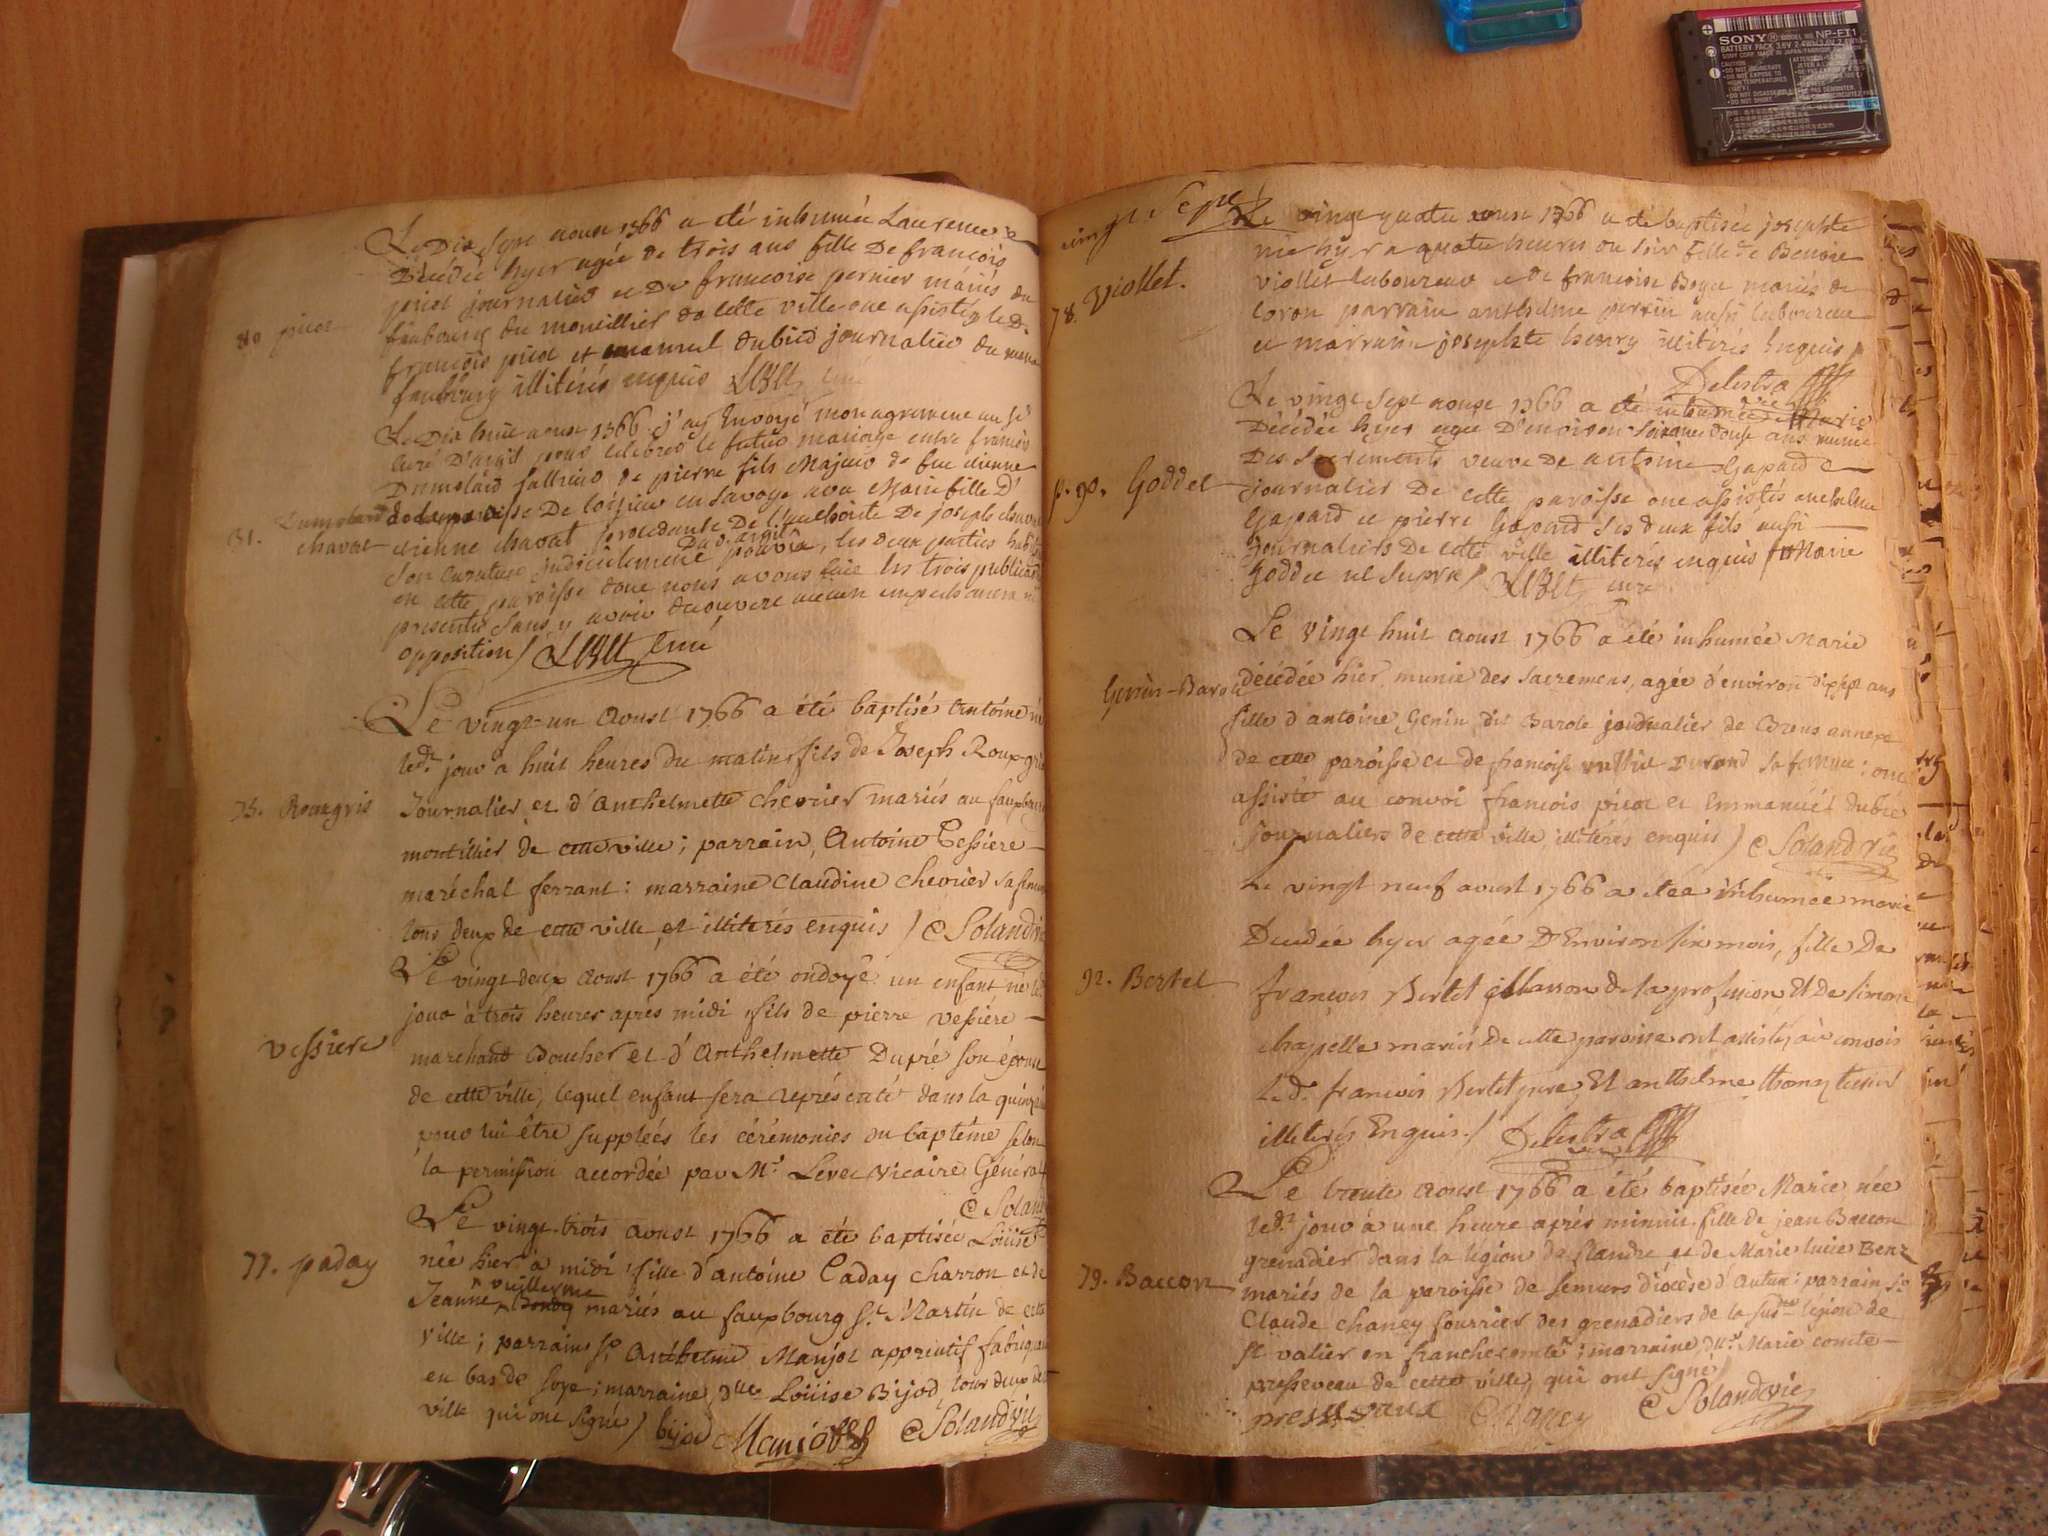 Le Dix sept aoust 1766 a été inhumée Laurence
Décédée hyer agée de trois ans fille De françois
picot journalier et De francoise pernier mariés du
fauxbourg du montillier de cette ville ont assistés le D.
françois picot et emanuel dubié journalier du meme
80 picot
faubourg illitérés enquis curé
Le Dix huit aoust 1766 j'ay Envoyé mon agrement au Sr
curé D'argis pour célébrer le futur mariage entre françois
Dumolard de pierre fils Majeur de feu etienne
de la paroisse De loisieu en Savoye avec Marie fille D'
31. Dumolard
chavat
etienne chavat procedante De l'authorité De joseph chavat
son curateur judiciellement pourvû, les deux parties
en cette paroisse dont nous avons faie les trois publications
presentes sans y avoir découvert aucun empechement ni
opposition / curé
Le vingt-un Aoust 1766 a été baptisé Antoine né
ledt. jour à huit heures du matin fils de Joseph Roux-gris
75. Rouxgris
Journalier et d'Anthelmette chevrier mariés au fauxbourg
montillier de cette ville; parrain, Antoine Tessiere
maréchal ferrant: marraine Claudine chevrier sa femme
tous deux de cette ville et illiterés enquis / C Solandvie
Le vingt deux Aoust 1766 a été ondoyé un enfant né led.
jour à trois heures après midi fils de pierre vessiére
vessiere
marchand Boucher et d'Anthelmette Dupré son épouse
de cette ville, lequel enfant sera représenté dans la quinzaine
pour lui être suppléés les cérémonies du baptême selon
la permission accordée par Mr. Levec vicaire Général
C Soland
Le vingt-trois Aoust 1766 a été baptisée Loüise
née hier à midi fille d'antoine Paday Charron et de
77. paday
Jeanne vuillerme mariés au fauxbourg St. Martin de cette
ville; parrain Sr. Anthelme Manjot apprentif fabriquant
en bas de soye; marraine, dlle Loüise Bijod, tous deux de
ville qui ont signé / bijod Manjot C Solandvie
vingt Sept
Le vingt quatre aoust 1766 a été baptisée josephte
née hyer a quatre heures du soir fille de Benoit
78. Viollet.
viollet laboureur et de françoise Boyer mariés de
coron parrain anthelme perrin aussi laboureur
et marraine josephte henry illitérés Enquis /
Delestra
Le vingt sept aoust 1766 a été inhumée Marie
Décédée hyer agée D'environ soixante douse ans munie
Des Sacrements veuve De antoine Gapard
p. 90. Goddet
journalier De cette paroisse ont assistés anthelme
Gapard et pierre Gapard ses deux fils aussi
journaliers De cette ville illiteres enquis Marie
Goddet ut supra / curé
Le vingt huit Aoust 1766 a été inhumée Marie
décédée hier, munie des sacremens, agée d'environ dixsept ans
Genin-Barole
fille d'antoine Genin dit Barole journalier de Brens annexe
de cette paroisse et de francoise Durand sa femme: ont
assisté au convoi françois picot et Emmanüel dubié
journaliers de cette ville illitérés enquis / C Solandvie
Le vingt neuf aoust 1766 a étéé inhumée marie
Decedée hyer agée D'Environ six mois, fille De
92. Bertet
francois Bertet Masson de sa profession Et De simone
chappelle mariés De cette paroisse ont assistés au convois
Le d. francois Bertet pere Et anthelme thomy
illiterés Enquis. / Delestra
Le trente Aoust 1766 a été baptisée Marie née
ledt. jour à une heure après minuit fille de jean Baccon
grenadier dans la légion de flandre et de Marie luce Benz
79. Baccon
mariés de la paroisse de semurs diocèse d'Autun: parrain Sr
Claude Chaney fourrier des grenadiers de la susdte légion de
St valier en franchecomté; marraine dlle Marie comte
presseveau de cette ville, qui ont signé /
presseveaux Chaney C Solandvie
SONY NP-FE1
BATTERY PACK 3.6V
CAUTION